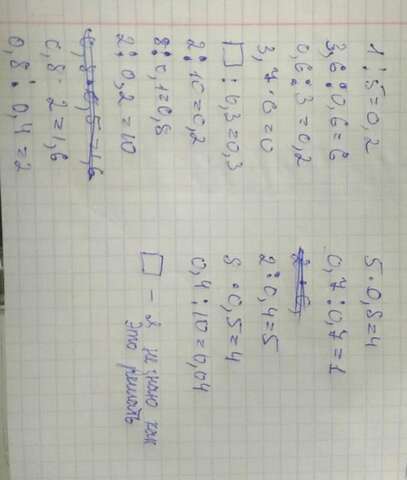 1:5=0,2
3,6:0,6=6
0,6:3=0,2
3,7·0=0
□:0,3=0,3
2:10=0,2
8·0,1=0,8
2:0,2=10
0,8·0,5=1,6
0,8·2=1,6
0,8:0,4=2
5·0,8=4
0,7:0,7=1
2:0,4=5
8·0,5=4
0,4:10=0,04
□ – Я не знаю как
это решать